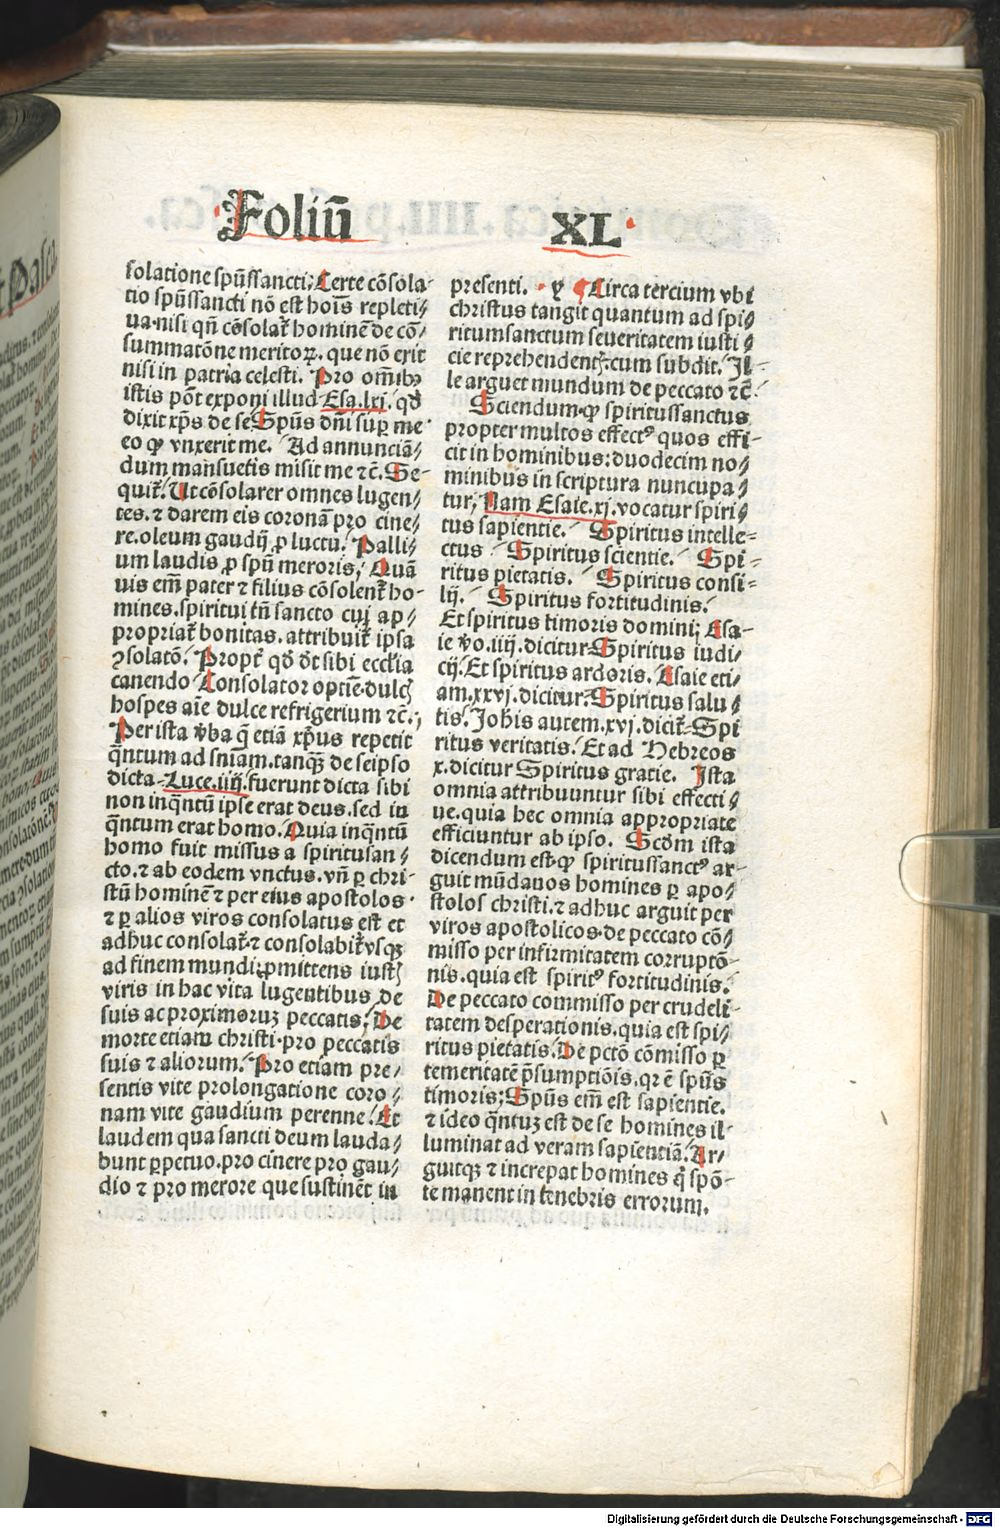 Foliū XL
solatione spūssancti; Certe cōsola-
tio spūssancti nō est hoīs repleti⸗
ua·nisi qn̄ cōsolat᷑ hominē de cō⸗
summatōne meritoꝝ. que nō erit
nisi in patria celesti. Pro om̄ibꝰ
istis pōt exponi illud Esa.lxj. qḋ
dixit xp̄s de se Spūs dn̄i sup̱ me
eo ꝙ vnxerit me. Ad annunciā⸗
dum mansuetis misit me ꝛc̄. Se-
quit᷑. Ut cōsolarer omnes lugen⸗
tes. ⁊ darem eis coronā pro cine⸗
re. oleum gaudij ꝓ luctu. Palli⸗
um laudis ꝓ spū meroris; Quā
uis em̄ pater ⁊ filius cōsolent᷑ ho-
mines. spiritui tn̄ sancto cuj ap-
propriat᷑ bonitas. attribuit᷑ ipsa
ꝯsolatō. Propt᷑ qḋ ḋt sibi ecclīa
canendo Consolator optīe dulcꝭ
hospes aīe dulce refrigerium ꝛc̄.;
Per ista v̄ba q̄ etiā xp̄us repetit
q̄ntum ad sn̄iam. tanqꝫ de seipso
dicta Luce.iiij. fuerunt dicta sibi
non inq̄ntū ipse erat deus. sed in
q̄ntum erat homo. Quia inq̄ntū
homo fuit missus a spiritusan⸗
cto. ⁊ ab eodem vnctus. vn̄ ꝑ chri-
stū hominē ⁊ per eius apostolos·
⁊ ꝑ alios viros consolatus est et
adhuc consolat᷑ ⁊ consolabit᷑ vsqꝫ
ad finem mundi; ꝓmittens iustꝭ
viris in hac vita lugentibus de
suis ac proximoruꝫ peccatis; De
morte etiam christi·pro peccatis
suis ⁊ aliorum. Pro etiam pre⸗
sentis vite prolongatione coro⸗
nam vite gaudium perenne. Et
laudem qua sancti deum lauda⸗
bunt ꝑpetuo. pro cinere pro gau⸗
dio ⁊ pro merore que sustinēt in
presenti. · ꝩ Circa tercium vbi
christus tangit quantum ad spi⸗
ritumsanctum seueritatem iusti⸗
cie reprehendentꝭ: cum subdit. Il-
le arguet mundum de peccato ꝛc̄
Sciendum·ꝙ spiritussanctus
propter multos effectꝰ quos effi-
cit in hominibus: duodecim no⸗
minibus in scriptura nuncupa⸗
tur; Nam Esaie.xj. vocatur spiri⸗
tus sapientie. Spiritus intelle=
ctus Spiritus scientie. Spi=
ritus pietatis. Spiritus consi=
lij. Spiritus fortitudinis.
Et spiritus timoris domini; Esa-
ie v̄o.iiij. dicitur Spiritus iudi⸗
cij. Et spiritus ardoris. Esaie eti⸗
am.xxvj. dicitur. Spiritus salu⸗
tis. Johīs autem.xvj. dicit᷑ Spi
ritus veritatis. Et ad Hebreos
x. dicitur Spiritus gratie. Ista
omnia attribuuntur sibi effecti⸗
ue. quia hec omnia appropriate
efficiuntur ab ipso. Scḋm ista
dicendum est·ꝙ spiritussanctꝰ ar-
guit mūdanos homines ꝑ apo⸗
stolos christi. ⁊ adhuc arguit per
viros apostolicos·de peccato cō⸗
misso per infirmitatem corruptō-
nis. quia est spiritꝰ fortitudinis.
De peccato commisso per crudeli-
tatem desperationis. quia est spi⸗
ritus pietatis. De pctō cōmisso ꝑ
temeritatē p̄sumptiōis. qr ē spūs
timoris; Spūs em̄ est sapientie.
⁊ ideo q̄ntuꝫ est de se homines il-
luminat ad veram sapientiā. Ar⸗
guitqꝫ ⁊ increpat homines q̇ spō-
te manent in tenebris errorum.
Digitalisierung gefördert durch die Deutsche Forschungsgemeinschaft - DFG